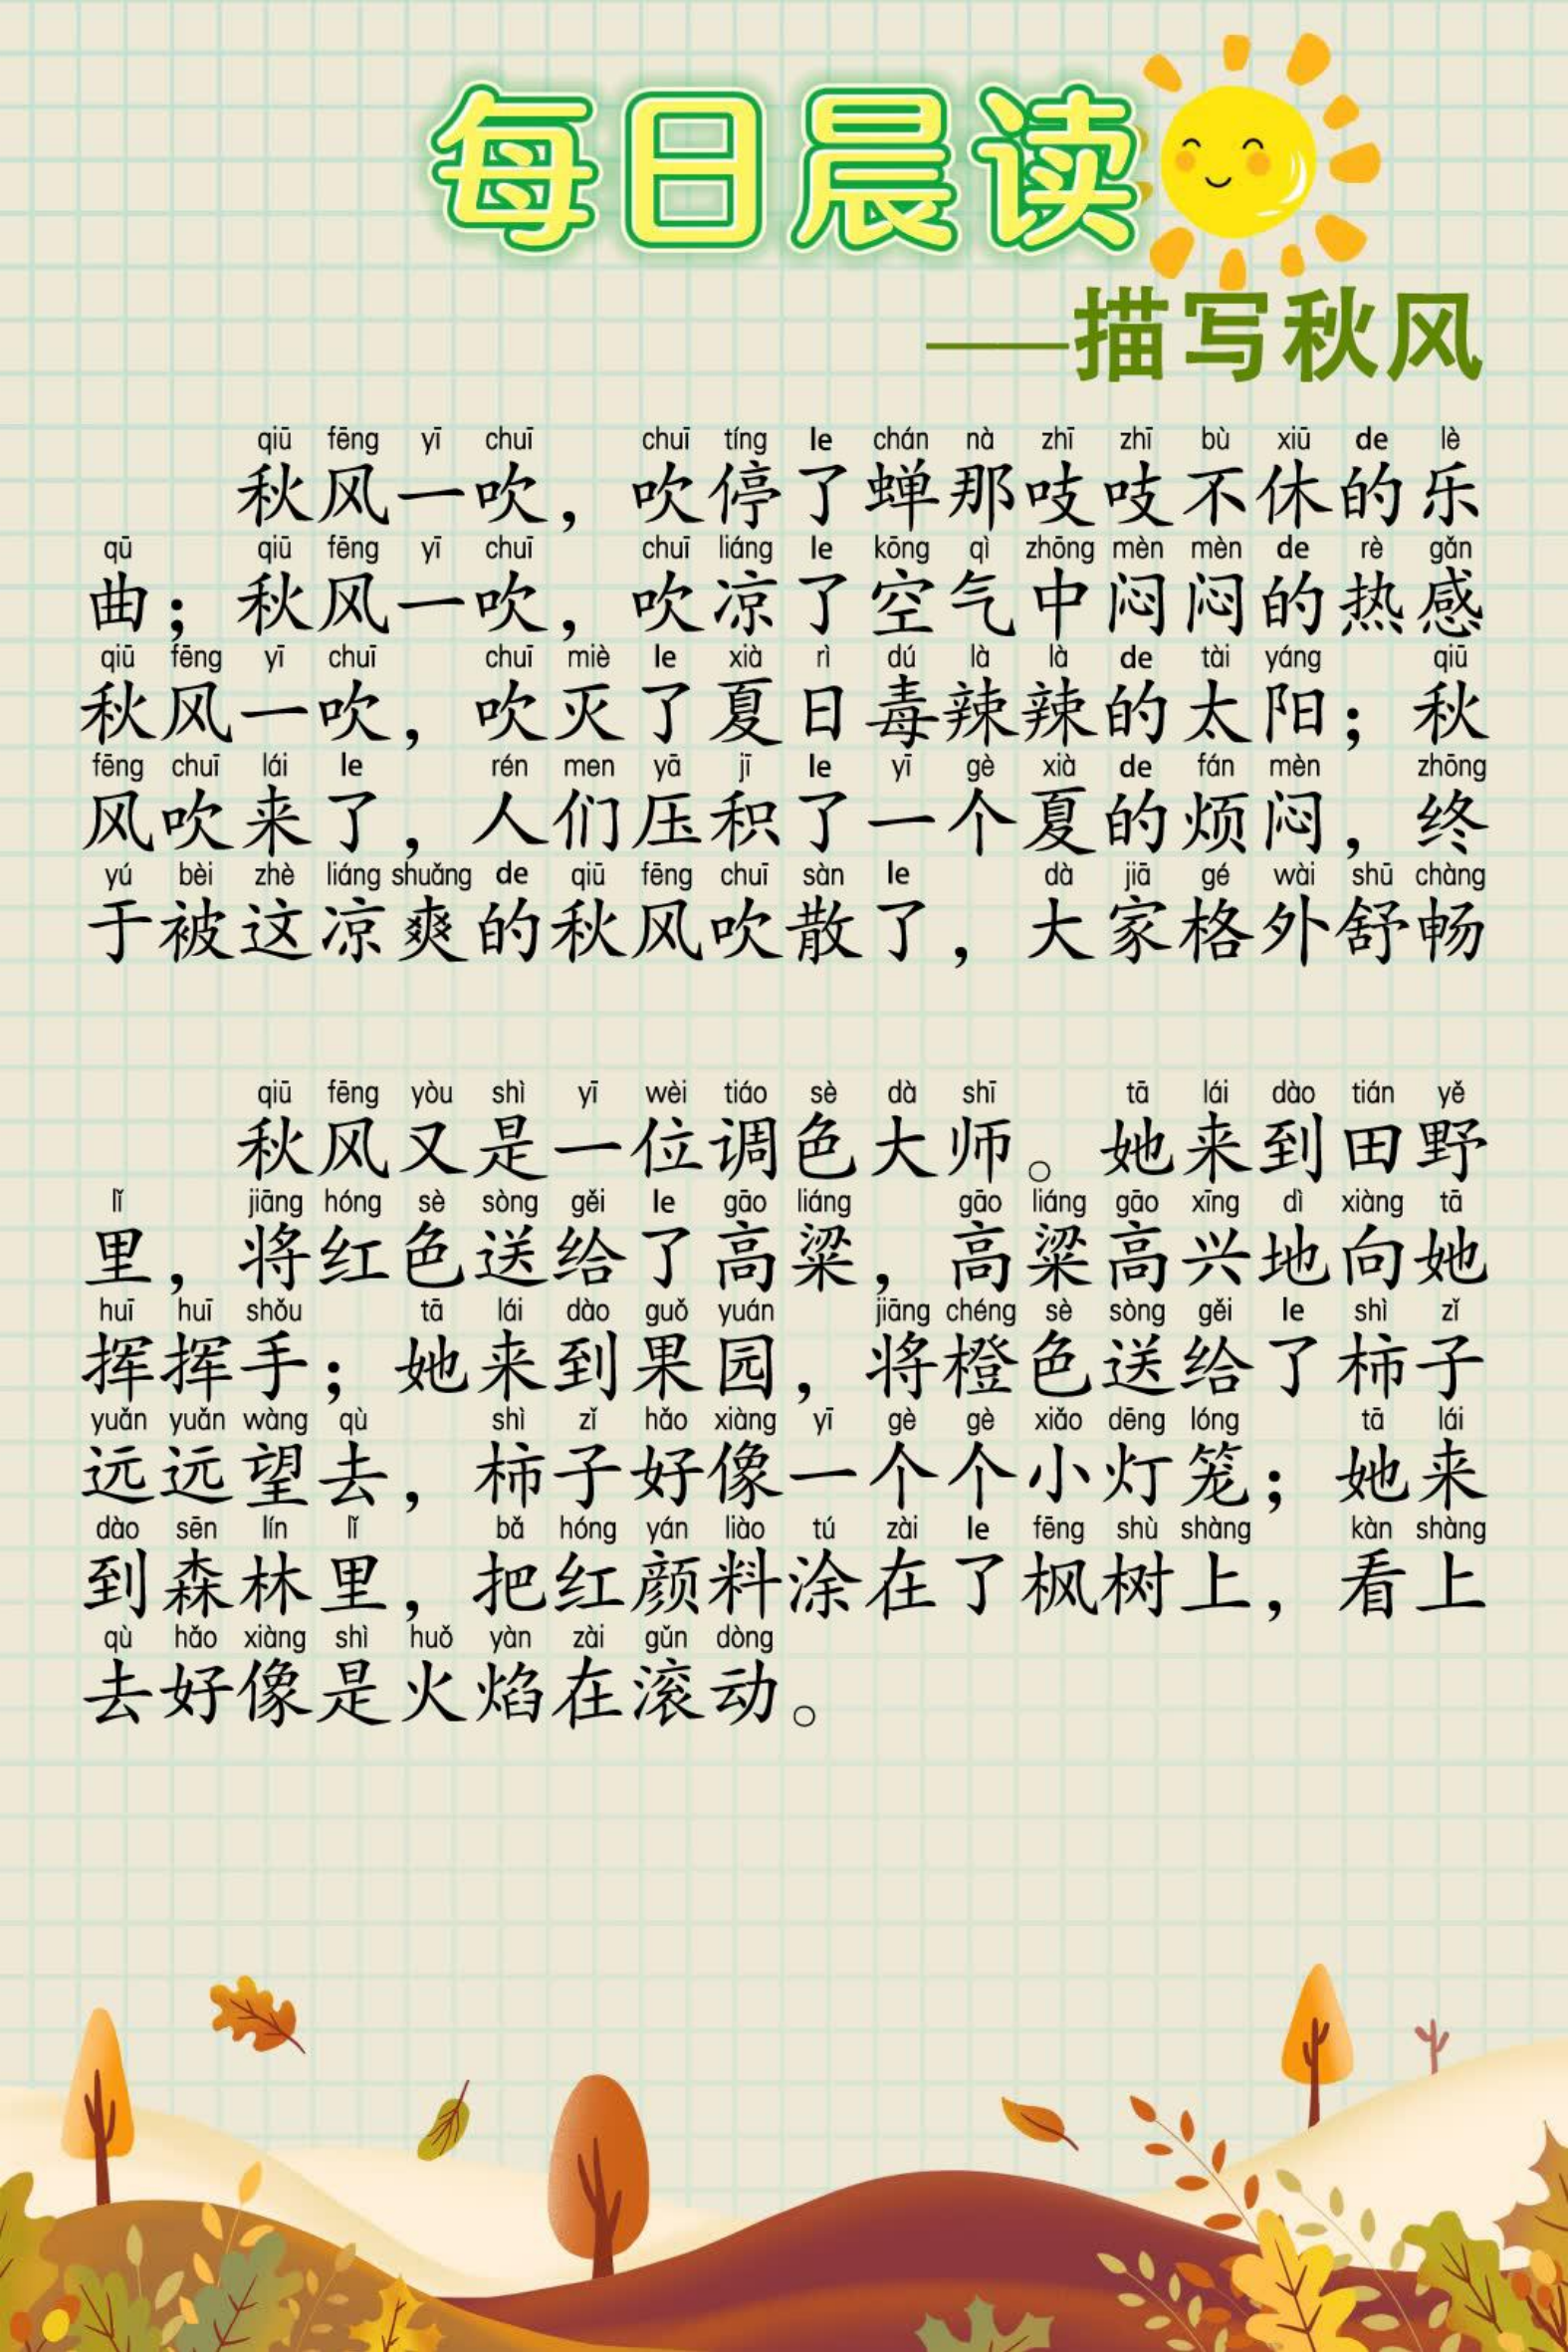 每日晨读
——描写秋风
qiū fēng yī chuī chuī tíng le chán nà zhī zhī bù xiū de lè
秋风一吹，吹停了蝉那吱吱不休的乐
qū qiū fēng yī chuī chuī liáng le kōng qì zhōng mèn mèn de rè gǎn
曲；秋风一吹，吹凉了空气中闷闷的热感
qiū fēng yī chuī chuī miè le xià rì dú là là de tài yáng qiū
秋风一吹，吹灭了夏日毒辣辣的太阳；秋
fēng chuī lái le rén men yā jī le yī gè xià de fán mèn zhōng
风吹来了，人们压积了一个夏的烦闷，终
yú bèi zhè liáng shuǎng de qiū fēng chuī sàn le dà jiā gé wài shū chàng
于被这凉爽的秋风吹散了，大家格外舒畅
qiū fēng yòu shì yī wèi tiáo sè dà shī tā lái dào tián yě
秋风又是一位调色大师。她来到田野
lǐ jiāng hóng sè sòng gěi le gāo liáng gāo liáng gāo xīng dì xiàng tā
里，将红色送给了高粱，高粱高兴地向她
huī huī shǒu tā lái dào guǒ yuán jiāng chéng sè sòng gěi le shì zǐ
挥挥手；她来到果园，将橙色送给了柿子
yuǎn yuǎn wàng qù shì zǐ hǎo xiàng yī gè gè xiǎo dēng lóng tā lái
远远望去，柿子好像一个个小灯笼；她来
dào sēn lín lǐ bǎ hóng yán liào tú zài le fēng shù shàng kàn shàng
到森林里，把红颜料涂在了枫树上，看上
qù hǎo xiàng shì huǒ yàn zài gǔn dòng
去好像是火焰在滚动。